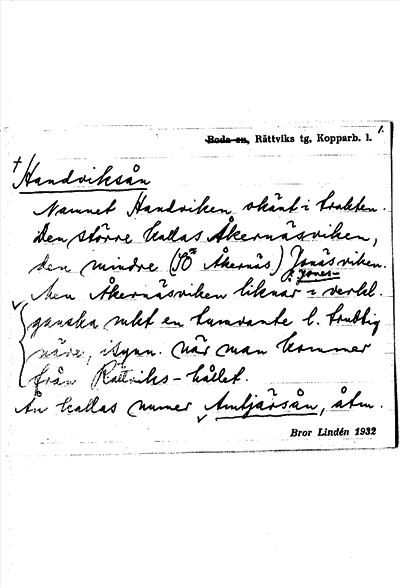 Boda sn, Rättviks tg, Kopparb. l. 1.
+ Handviksån
Namnet Handviken okänt i trakten.
Den större kallas Åkernäsviken,
den mindre (SÖ Åkernäs) Jonäsviken.
jones-
Men Åkernäsviken liknar i verkl.
ganska mkt en tumvante l. trubbig
näve, isynn. när man kommer
från Rättviks-hållet.
Ån kallas numer Amtjärsån, åtm.
Bror Lindén 1932